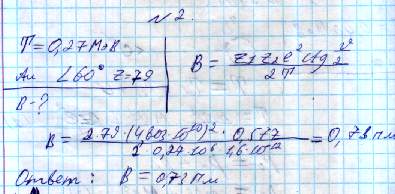 №2.
T=0,27 МэВ
Au ∠60° z=79
B-?
B = z₁z₂e² ctg υ/2 / 2T
B = 2·79·(4,803·10¹⁰)²·0,577 / 2·0,27·10⁶·1,6·10⁻¹² = 0,73 пм
Ответ: B = 0,73 пм